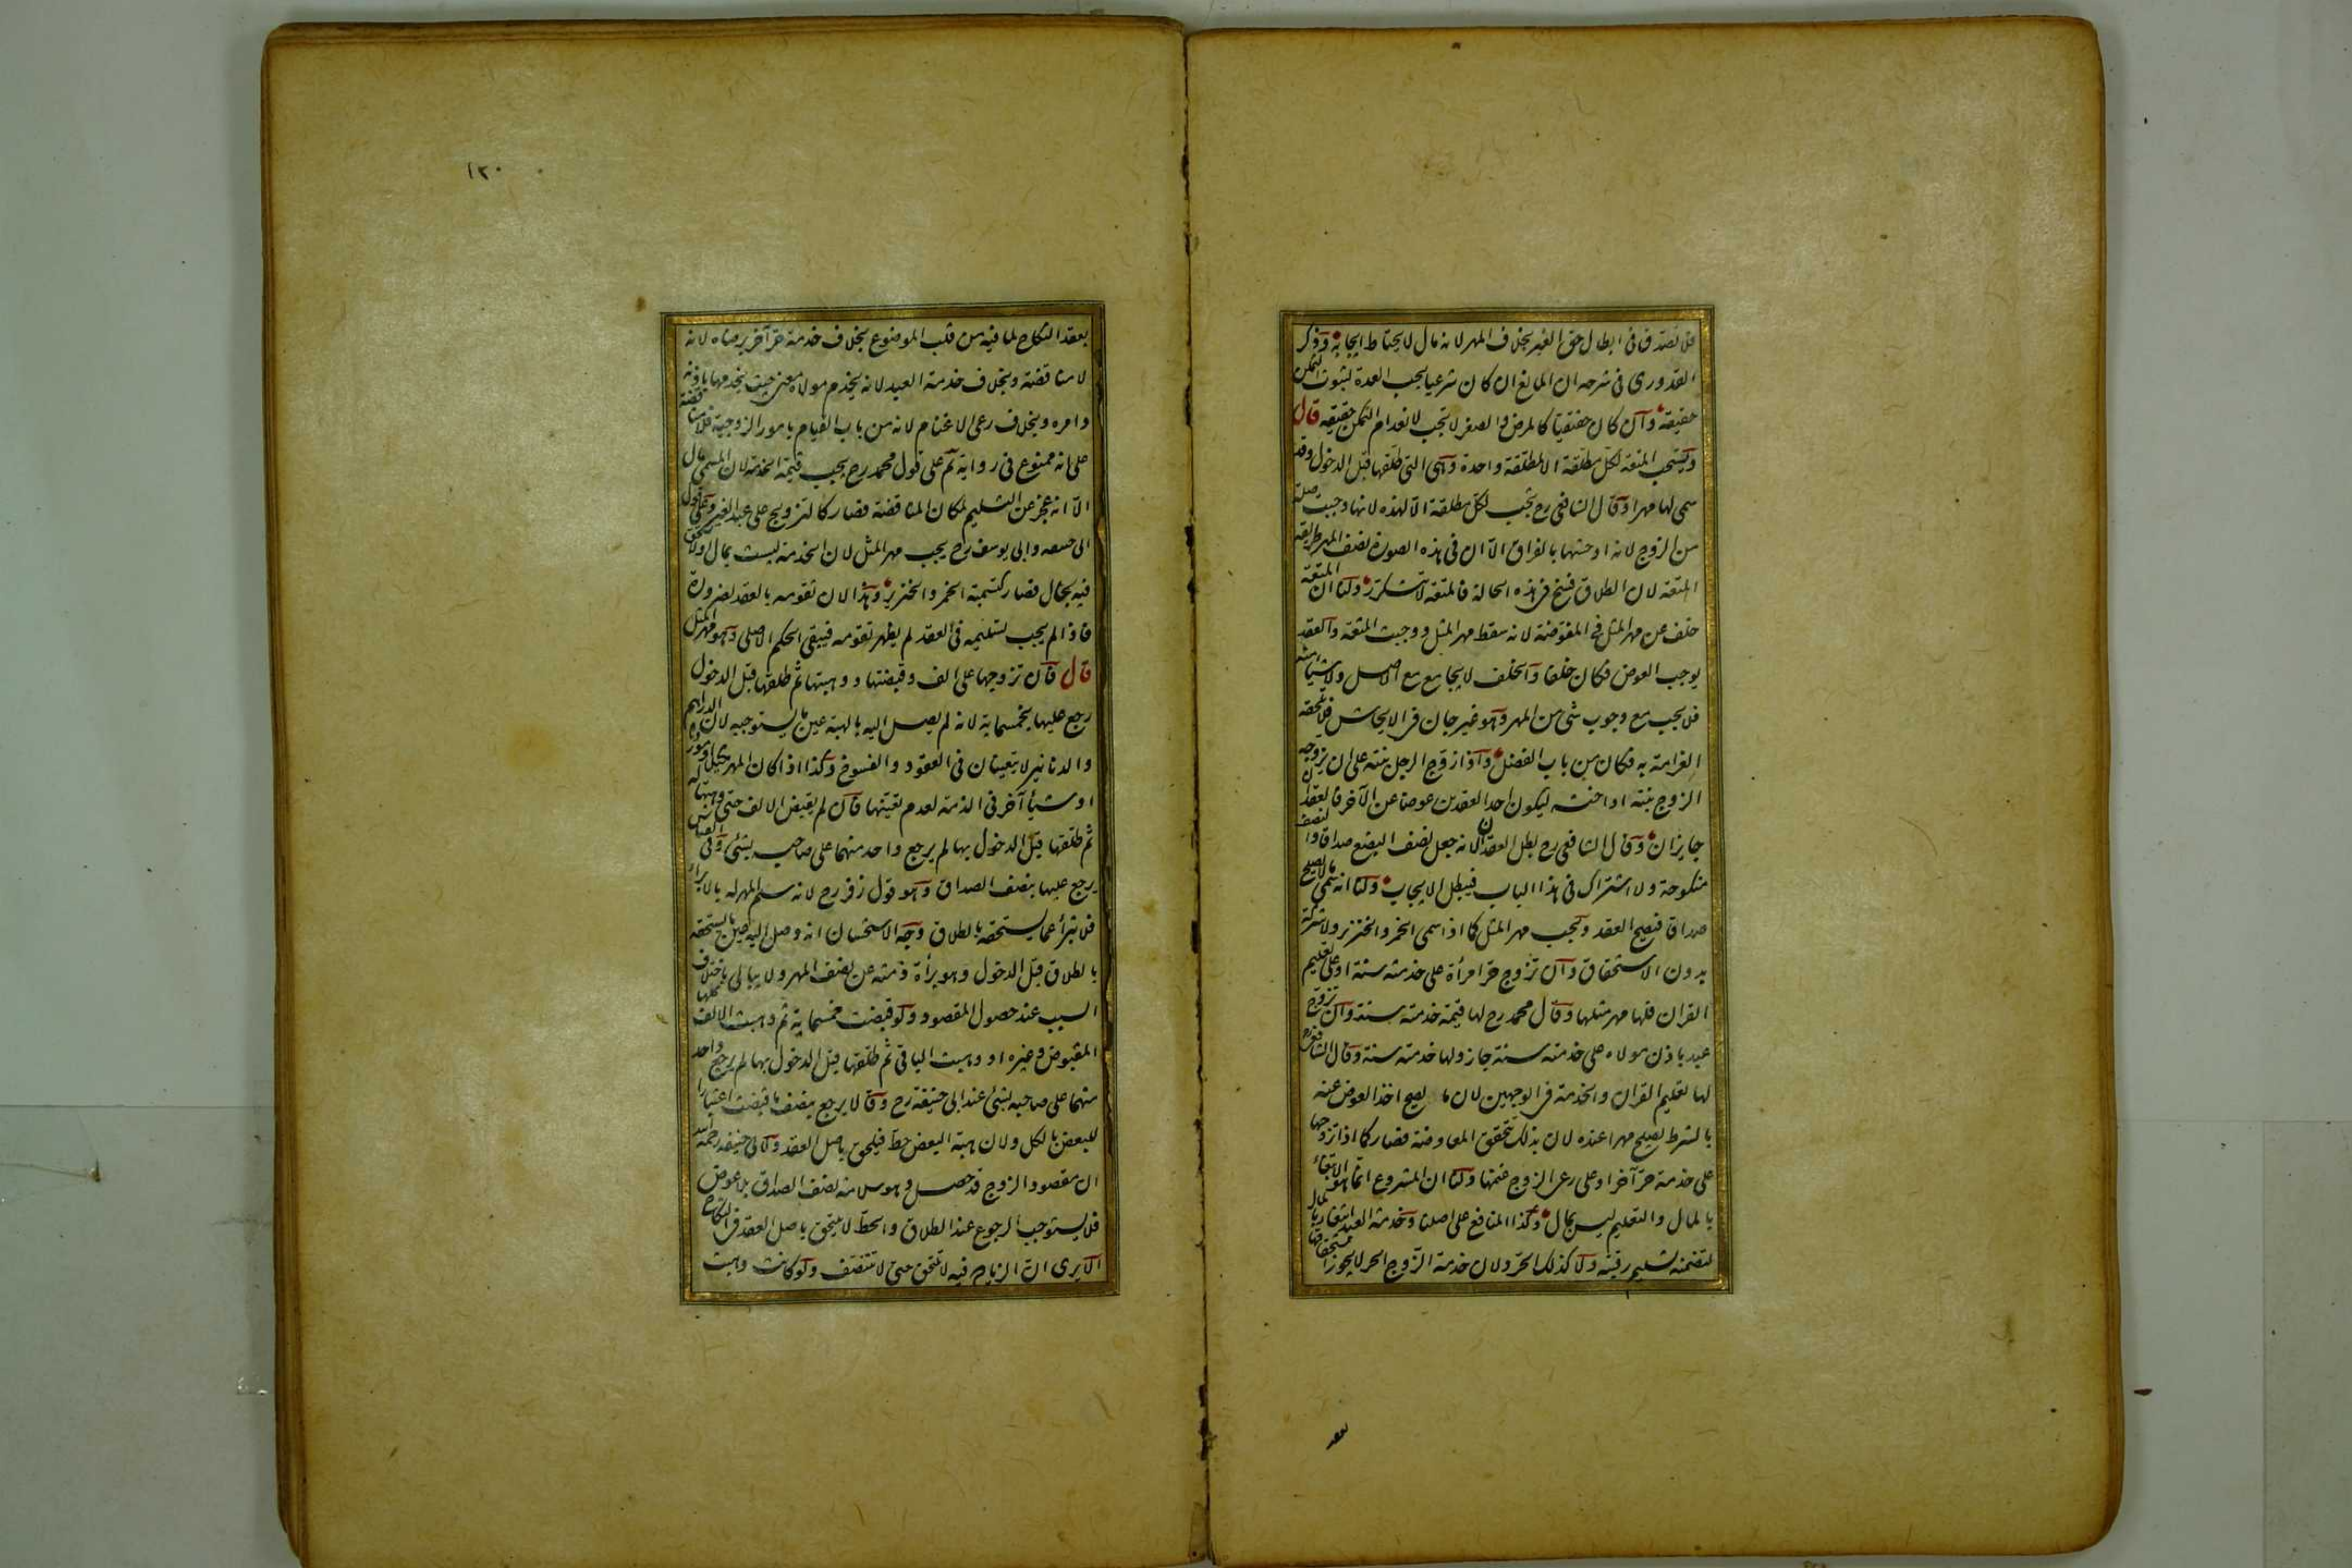 فلا تصدق فى ابطال حق الغير بخلاف المهر لانه مال لا يحتاط ايجابه وذكر
القدورى فى شرحه ان المانع ان كان شرعيا يجب العدة لثبوت التمكن
حقيقة وان كان حقيقيا كالمرض والصغر لا تجب لانعدام التمكن حقيقة قال
وتستحب المتعة لكل مطلقة الا لمطلقة واحدة وهى التى طلقها قبل الدخول وقد
سمى لها مهرا وقال الشافعى رح تجب لكل مطلقة الا لهذه لانها وجبت صلة
من الزوج لانه اوحشها بالفراق الا ان فى هذه الصورة نصف المهر طريقة
المتعة لان الطلاق فسخ فى هذه الحالة فالمتعة لا تتكرر ولنا ان المتعة
خلف عن مهر المثل فى المفوضة لانه سقط مهر المثل ووجبت المتعة والعقد
يوجب العوض فكان خلفا والخلف لا يجامع مع الاصل ولا شيئا منه
فلا يجب مع وجوب شئ من المهر وهو غير جان فى الايحاش فلا تلحقه
الغرامة به فكان من باب الفضل واذا زوج الرجل بنته على ان يزوجه
الزوج بنته او اخته ليكون احد العقدين عوضا عن الآخر فالعقدان
جايزان وقال الشافعى رح بطل العقدان لانه جعل نصف البضع صداقا والنصف
منكوحة ولا اشتراك فى هذا الباب فيبطل الايجاب ولنا انه سمى ما لا يصلح
صداقا فيصح العقد ويجب مهر المثل كما اذا سمى الخمر والخنزير ولا شركة
بدون الاستحقاق وان تزوج حر امرأة على خدمته سنة او على تعليم
القران فلها مهر مثلها وقال محمد رح لها قيمة خدمته سنة وان تزوج
عبد باذن مولاه على خدمته سنة جاز ولها خدمته سنة وقال الشافعى رح
لها تعليم القران والخدمة فى الوجهين لان ما يصح اخذ العوض عنه
بالشرط يصلح مهرا عنده لان بذلك تتحقق المعاوضة فصار كما اذا تزوجها
على خدمة حر آخر او على رعى الزوج غنمها ولنا ان المشروع انما هو الابتغاء
بالمال والتعليم ليس بمال وكذا المنافع على اصلنا وخدمة العبد ابتغاء بالمال
لتضمنه تسليم رقبته ولا كذلك الحر ولان خدمة الزوج الحر لا يجوز استحقاقها
بعقد
١٢٠
بعقد النكاح لما فيه من قلب الموضوع بخلاف خدمة حر آخر برضاه لانه
لا مناقضة وبخلاف خدمة العبد لانه يخدم مولاه معنى حيث يخدمها باذنه
وامره وبخلاف رعى الاغنام لانه من باب القيام بامور الزوجية فلا مناقضة
على انه ممنوع فى رواية ثم على قول محمد رح يجب قيمة الخدمة لان المسمى مال
الا انه عجز عن التسليم لمكان المناقضة فصار كالتزويج على عبد الغير وعلى قول
ابى حنيفة وابى يوسف رح يجب مهر المثل لان الخدمة ليست بمال اذ لا تستحق
فيه بحال فصار كتسمية الخمر والخنزير وهذا لان تقومه بالعقد لضرورة
فاذا لم يجب تسليمه فى العقد لم يظهر تقومه فيبقى الحكم الاصلى وهو مهر المثل
قال فان تزوجها على الف وقبضتها ووهبتها ثم طلقها قبل الدخول
رجع عليها بخمسماية لانه لم يصل اليه بالهبة عين ما يستوجبه لان الدراهم
والدنانير لا يتعينان فى العقود والفسوخ وكذا اذا كان المهر مكيلا او موزونا
او شيئا آخر فى الذمة لعدم تعينها فان لم يقبض الالف حتى وهبتها له
ثم طلقها قبل الدخول بها لم يرجع واحد منهما على صاحبه بشئ وفى القياس
يرجع عليها بنصف الصداق وهو قول زفر رح لانه سلم المهر له بالابراء
فلا تبرأ عما يستحقه بالطلاق وجه الاستحسان انه وصل اليه عين ما يستحقه
بالطلاق قبل الدخول وهو برأة ذمته عن نصف المهر ولا يبالى باختلاف
السبب عند حصول المقصود ولو قبضت خمسماية ثم وهبت الالف كلها
المقبوض وغيره او وهبت الباقى ثم طلقها قبل الدخول بها لم يرجع واحد
منهما على صاحبه بشئ عند ابى حنيفة رح وقالا يرجع بنصف ما قبضت اعتبارا
للبعض بالكل ولان هبة البعض حط فيلحق باصل العقد ولابى حنيفه رحمه الله
ان مقصود الزوج قد حصل وهو سلامة نصف الصداق بلا عوض
فلا يستوجب الرجوع عند الطلاق والحط لا يلتحق باصل العقد فى النكاح
الا يرى ان الزيادة فيه لا تلتحق حتى لا تتنصف ولو كانت وهبت